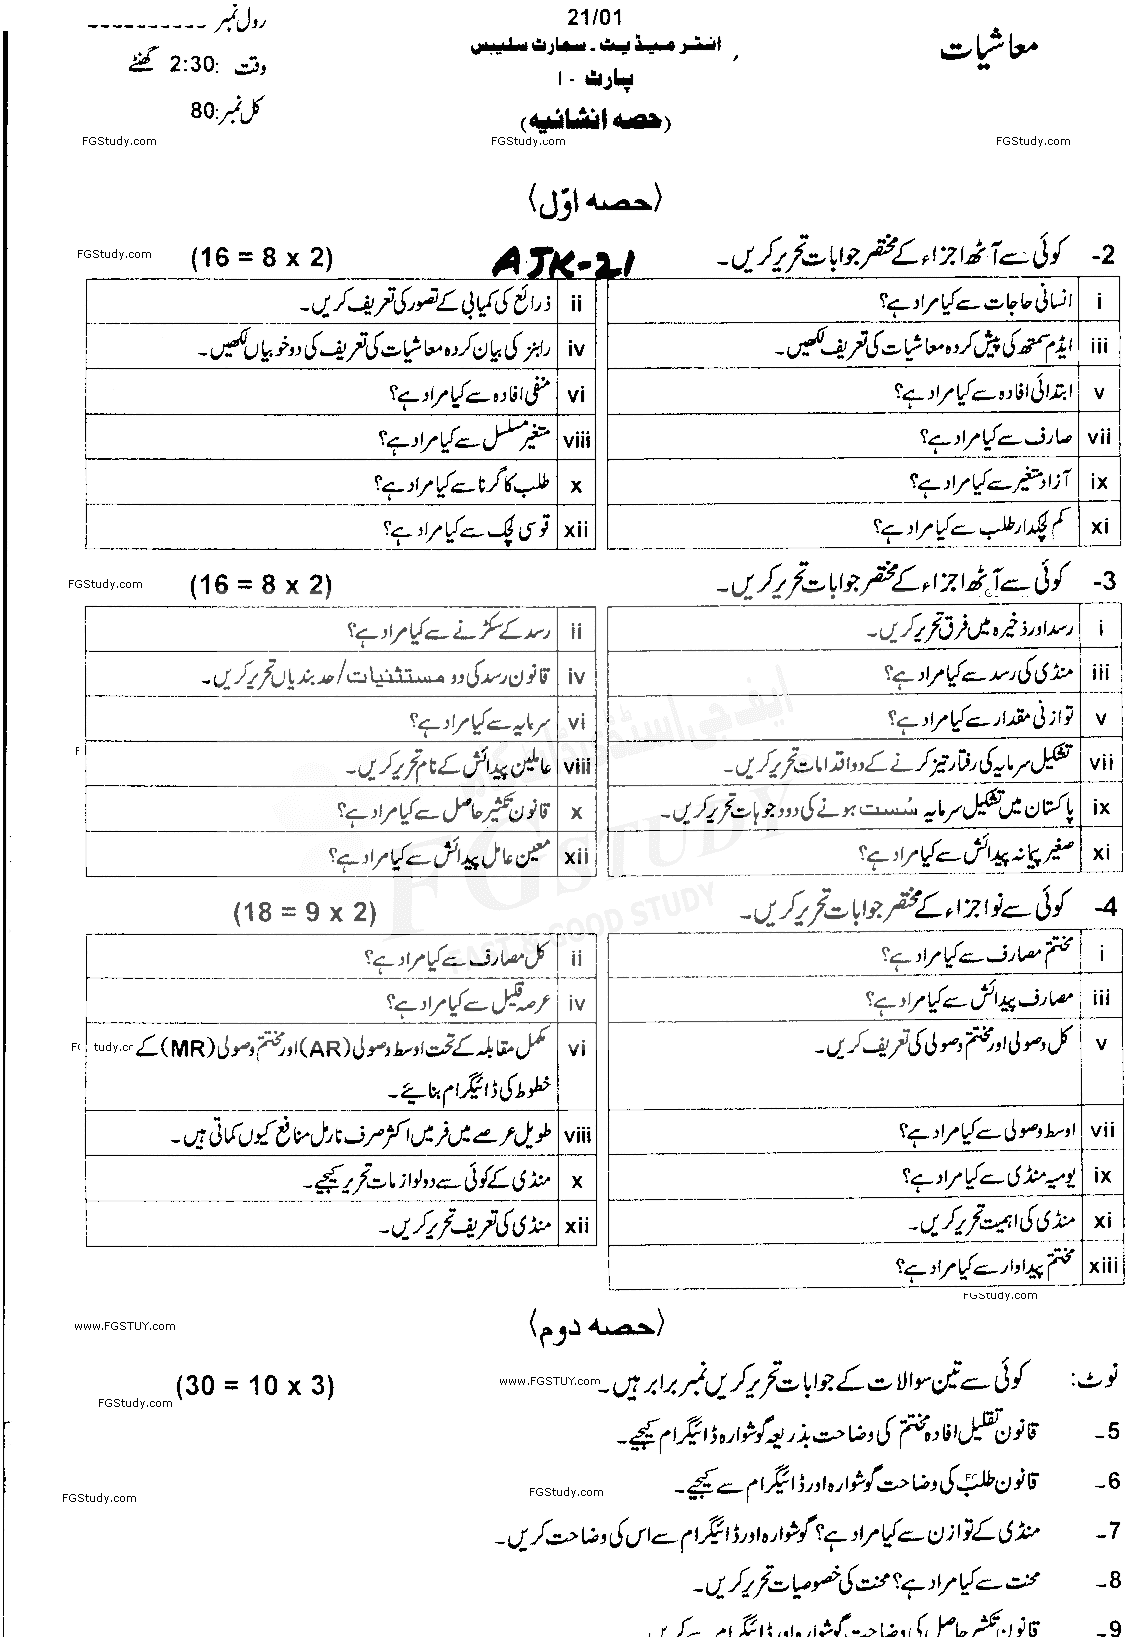 21/01
رول نمبر ----------
معاشیات
انٹرمیڈیٹ۔ سمارٹ سلیبس
وقت :2:30 گھنٹے
پارٹ - I
کل نمبر:80
(حصہ انشائیہ)
FGStudy.com FGStudy.com FGStudy.com
(حصہ اوّل)
2- کوئی سے آٹھ اجزاء کے مختصر جوابات تحریر کریں۔ AJK-21 (16 = 8 x 2) FGStudy.com
i انسانی حاجات سے کیا مراد ہے؟ ii ذرائع کی کمیابی کے تصور کی تعریف کریں۔
iii ایڈم سمتھ کی پیش کردہ معاشیات کی تعریف لکھیں۔ iv رابنز کی بیان کردہ معاشیات کی تعریف کی دو خوبیاں لکھیں۔
v ابتدائی افادہ سے کیا مراد ہے؟ vi منفی افادہ سے کیا مراد ہے؟
vii صارف سے کیا مراد ہے؟ viii متغیر مسلسل سے کیا مراد ہے؟
ix آزاد متغیر سے کیا مراد ہے؟ x طلب کا گرنا سے کیا مراد ہے؟
xi کم لچکدار طلب سے کیا مراد ہے؟ xii قوسی لچک سے کیا مراد ہے؟
3- کوئی سے آٹھ اجزاء کے مختصر جوابات تحریر کریں۔ (16 = 8 x 2) FGStudy.com
i رسد اور ذخیرہ میں فرق تحریر کریں۔ ii رسد کے سکڑنے سے کیا مراد ہے؟
iii منڈی کی رسد سے کیا مراد ہے؟ iv قانون رسد کی دو مستثنیات/حد بندیاں تحریر کریں۔
v توازنی مقدار سے کیا مراد ہے؟ vi سرمایہ سے کیا مراد ہے؟
vii تشکیل سرمایہ کی رفتار تیز کرنے کے دو اقدامات تحریر کریں۔ viii عاملین پیدائش کے نام تحریر کریں۔
ix پاکستان میں تشکیل سرمایہ سُست ہونے کی دو وجوہات تحریر کریں۔ x قانون تکثیر حاصل سے کیا مراد ہے؟
xi صغیر پیمانہ پیدائش سے کیا مراد ہے؟ xii معین عامل پیدائش سے کیا مراد ہے؟
FGSTUDY
FAST & GOOD STUDY
4- کوئی سے نو اجزاء کے مختصر جوابات تحریر کریں۔ (18 = 9 x 2)
i مختتم مصارف سے کیا مراد ہے؟ ii کل مصارف سے کیا مراد ہے؟
iii مصارف پیدائش سے کیا مراد ہے؟ iv عرصہ قلیل سے کیا مراد ہے؟
v کل وصولی اور مختتم وصولی کی تعریف کریں۔ vi مکمل مقابلہ کے تحت اوسط وصولی (AR) اور مختتم وصولی (MR) کے
خطوط کی ڈائیگرام بنائیے۔
vii اوسط وصولی سے کیا مراد ہے؟ viii طویل عرصے میں فرمیں اکثر صرف نارمل منافع کیوں کماتی ہیں۔
ix یومیہ منڈی سے کیا مراد ہے؟ x منڈی کے کوئی سے دو لوازمات تحریر کیجیے۔
xi منڈی کی اہمیت تحریر کریں۔ xii منڈی کی تعریف تحریر کریں۔
xiii مختتم پیداوار سے کیا مراد ہے؟
FGStudy.com
(حصہ دوم)
www.FGSTUY.com
نوٹ: کوئی سے تین سوالات کے جوابات تحریر کریں نمبر برابر ہیں۔ www.FGSTUY.com (30 = 10 x 3)
FGStudy.com
5- قانون تقلیل افادہ مختتم کی وضاحت بذریعہ گوشوارہ ڈائیگرام کیجیے۔
6- قانون طلب کی وضاحت گوشوارہ اور ڈائیگرام سے کیجیے۔
FGStudy.com FGStudy.com
7- منڈی کے توازن سے کیا مراد ہے؟ گوشوارہ اور ڈائیگرام سے اس کی وضاحت کریں۔
8- محنت سے کیا مراد ہے؟ محنت کی خصوصیات تحریر کریں۔
9- قانون تکثیر حاصل کی وضاحت گوشوارہ اور ڈائیگرام سے کریں۔